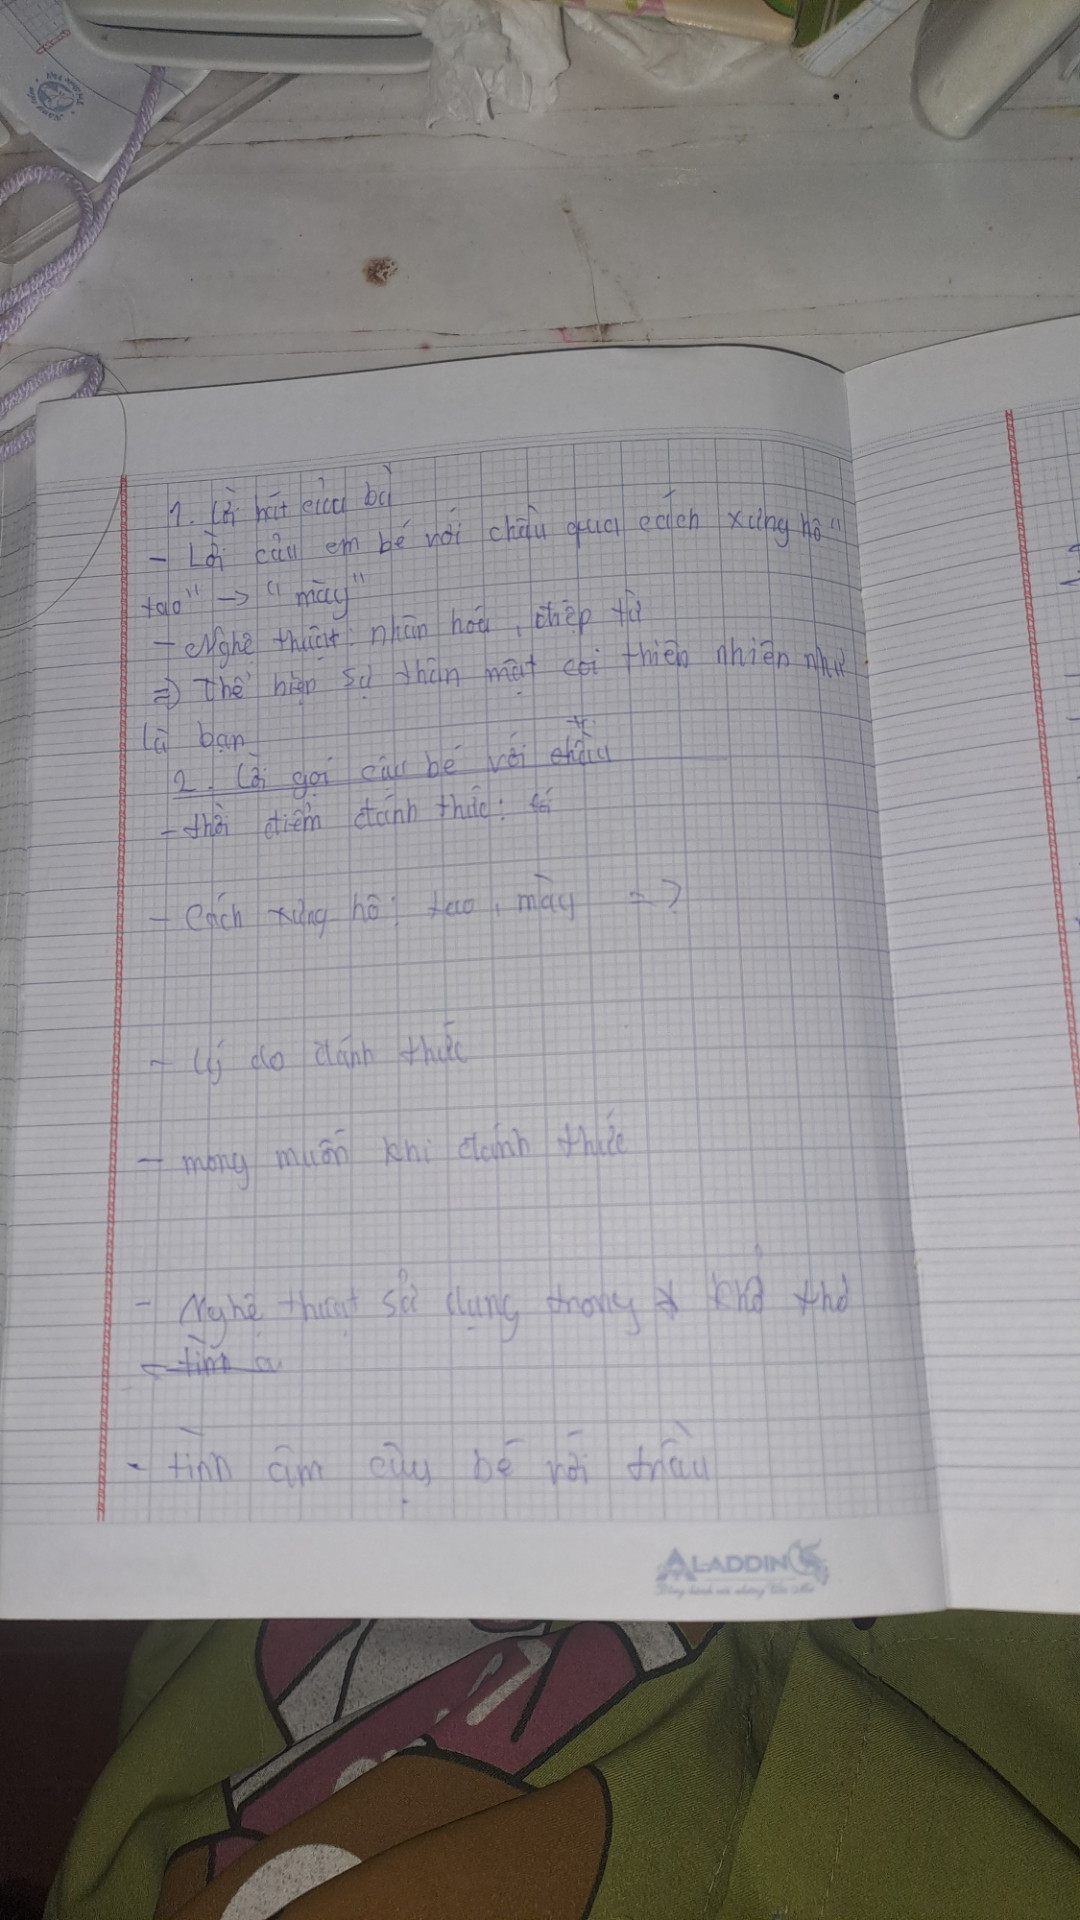 1. Lời hát của bà
- Lời cảu em bé với chầu qua cách xưng hô "
tao" -> "mày"
- Nghệ thuật: nhân hoá, điệp từ
=> Thể hiện sự thân mật coi thiên nhiên như
là bạn
2. Lời gọi cảu bé với chầu
tr
- thời điểm đánh thức:
- Cách xưng hô: tao, mày = ?
- Lý do đánh thức
- mong muốn khi đánh thức
- Nghệ thuật sử dụng trong khổ thơ
- tình
- tình âm cậu bé với trầu
ALADDIN